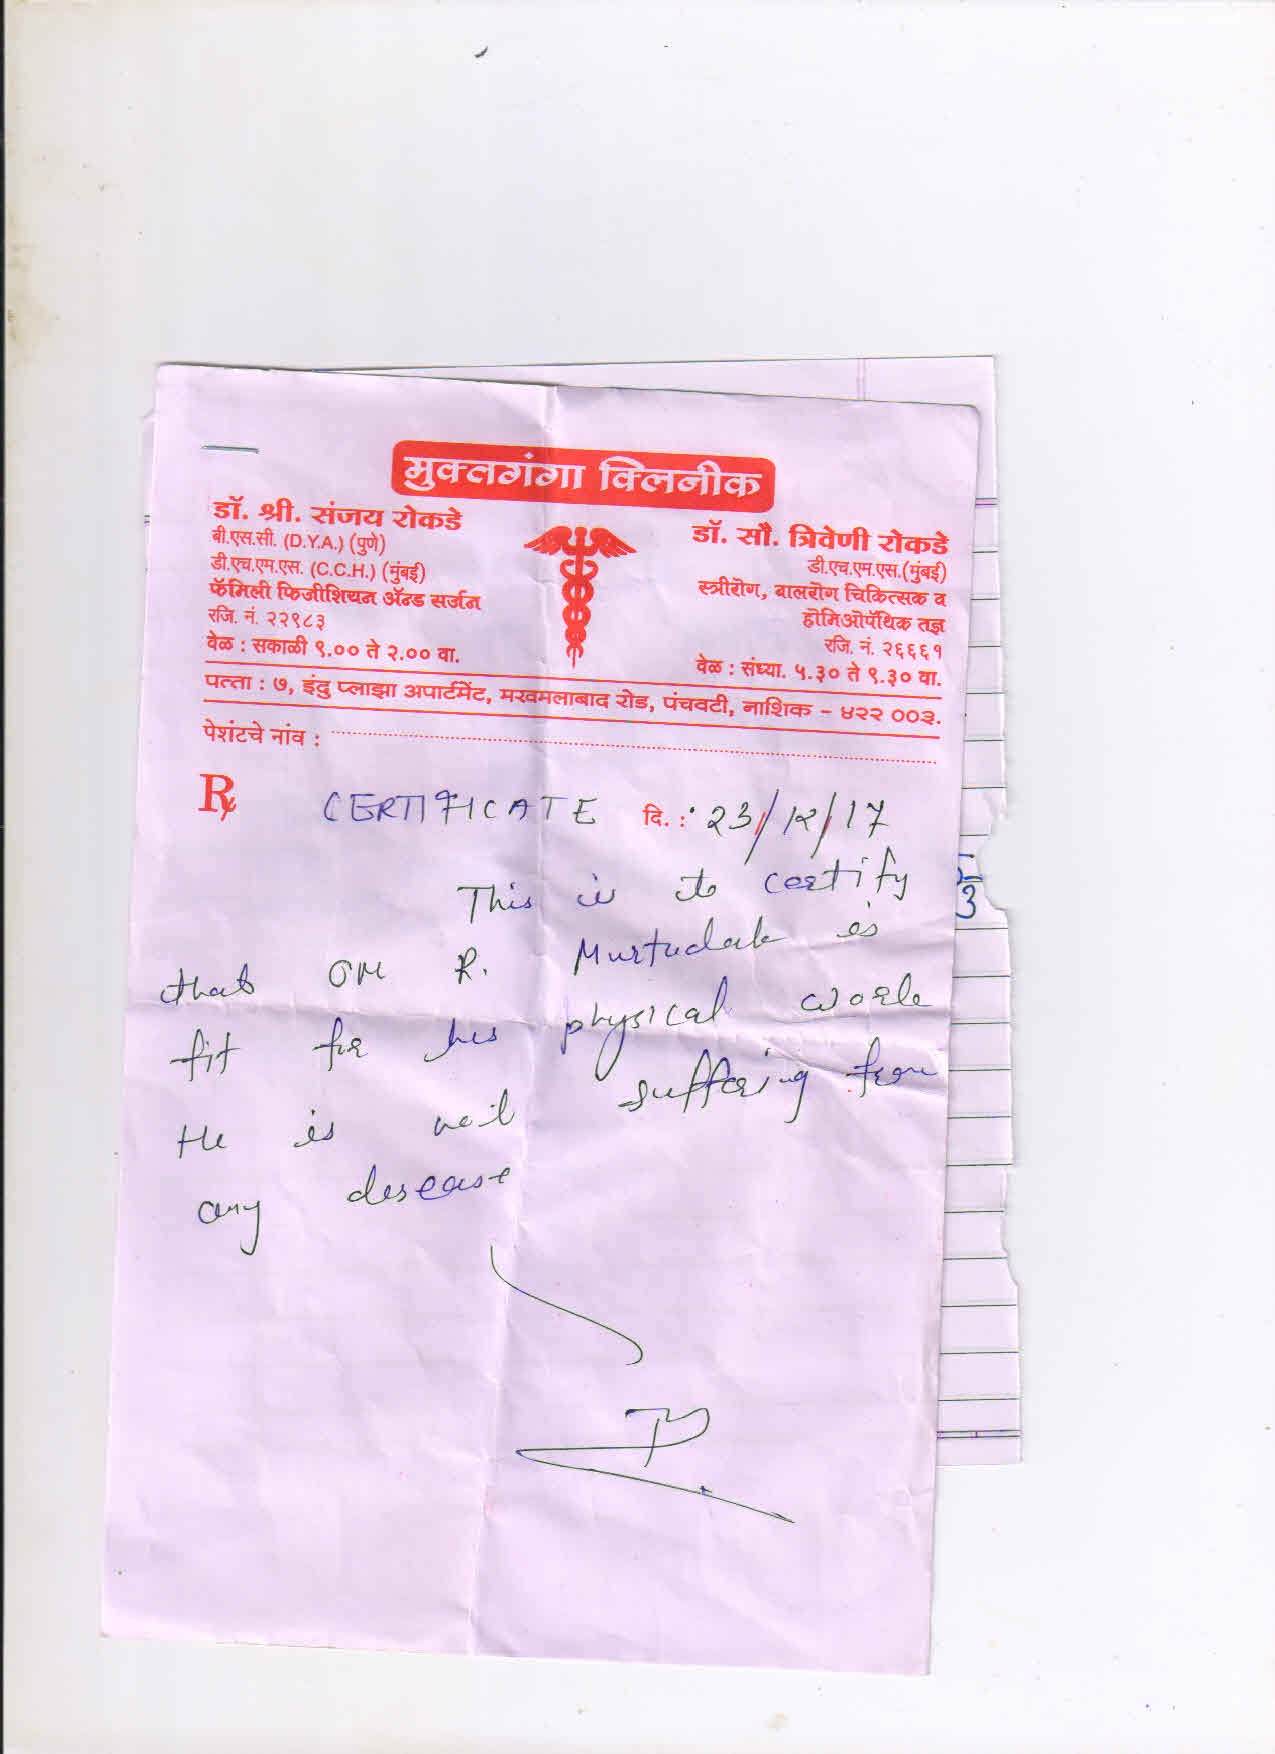 मुक्तगंगा क्लिनीक
डॉ. श्री. संजय रोकडे
बी.एस.सी. (D.Y.A.) (पुणे)
डी.एच.एम.एस. (C.C.H.) (मुंबई)
फॅमिली फिजीशियन ॲन्ड सर्जन
रजि. नं. २२९८३
वेळ : सकाळी ९.०० ते २.०० वा.
डॉ. सौ. त्रिवेणी रोकडे
डी.एच.एम.एस.(मुंबई)
स्त्रीरोग, बालरोग चिकित्सक व
होमिओपॅथिक तज्ञ
रजि. नं. २६६६१
वेळ : संध्या. ५.३० ते ९.३० वा.
पत्ता : ७, इंदु प्लाझा अपार्टमेंट, मखमलाबाद रोड, पंचवटी, नाशिक - ४२२ ००३.
पेशंटचे नांव :
Rx CERTIFICATE दि. : 23/12/17
This is to certify
that OM R. Murtadak is
fit for his physical work
He is not suffering from
any disease
3